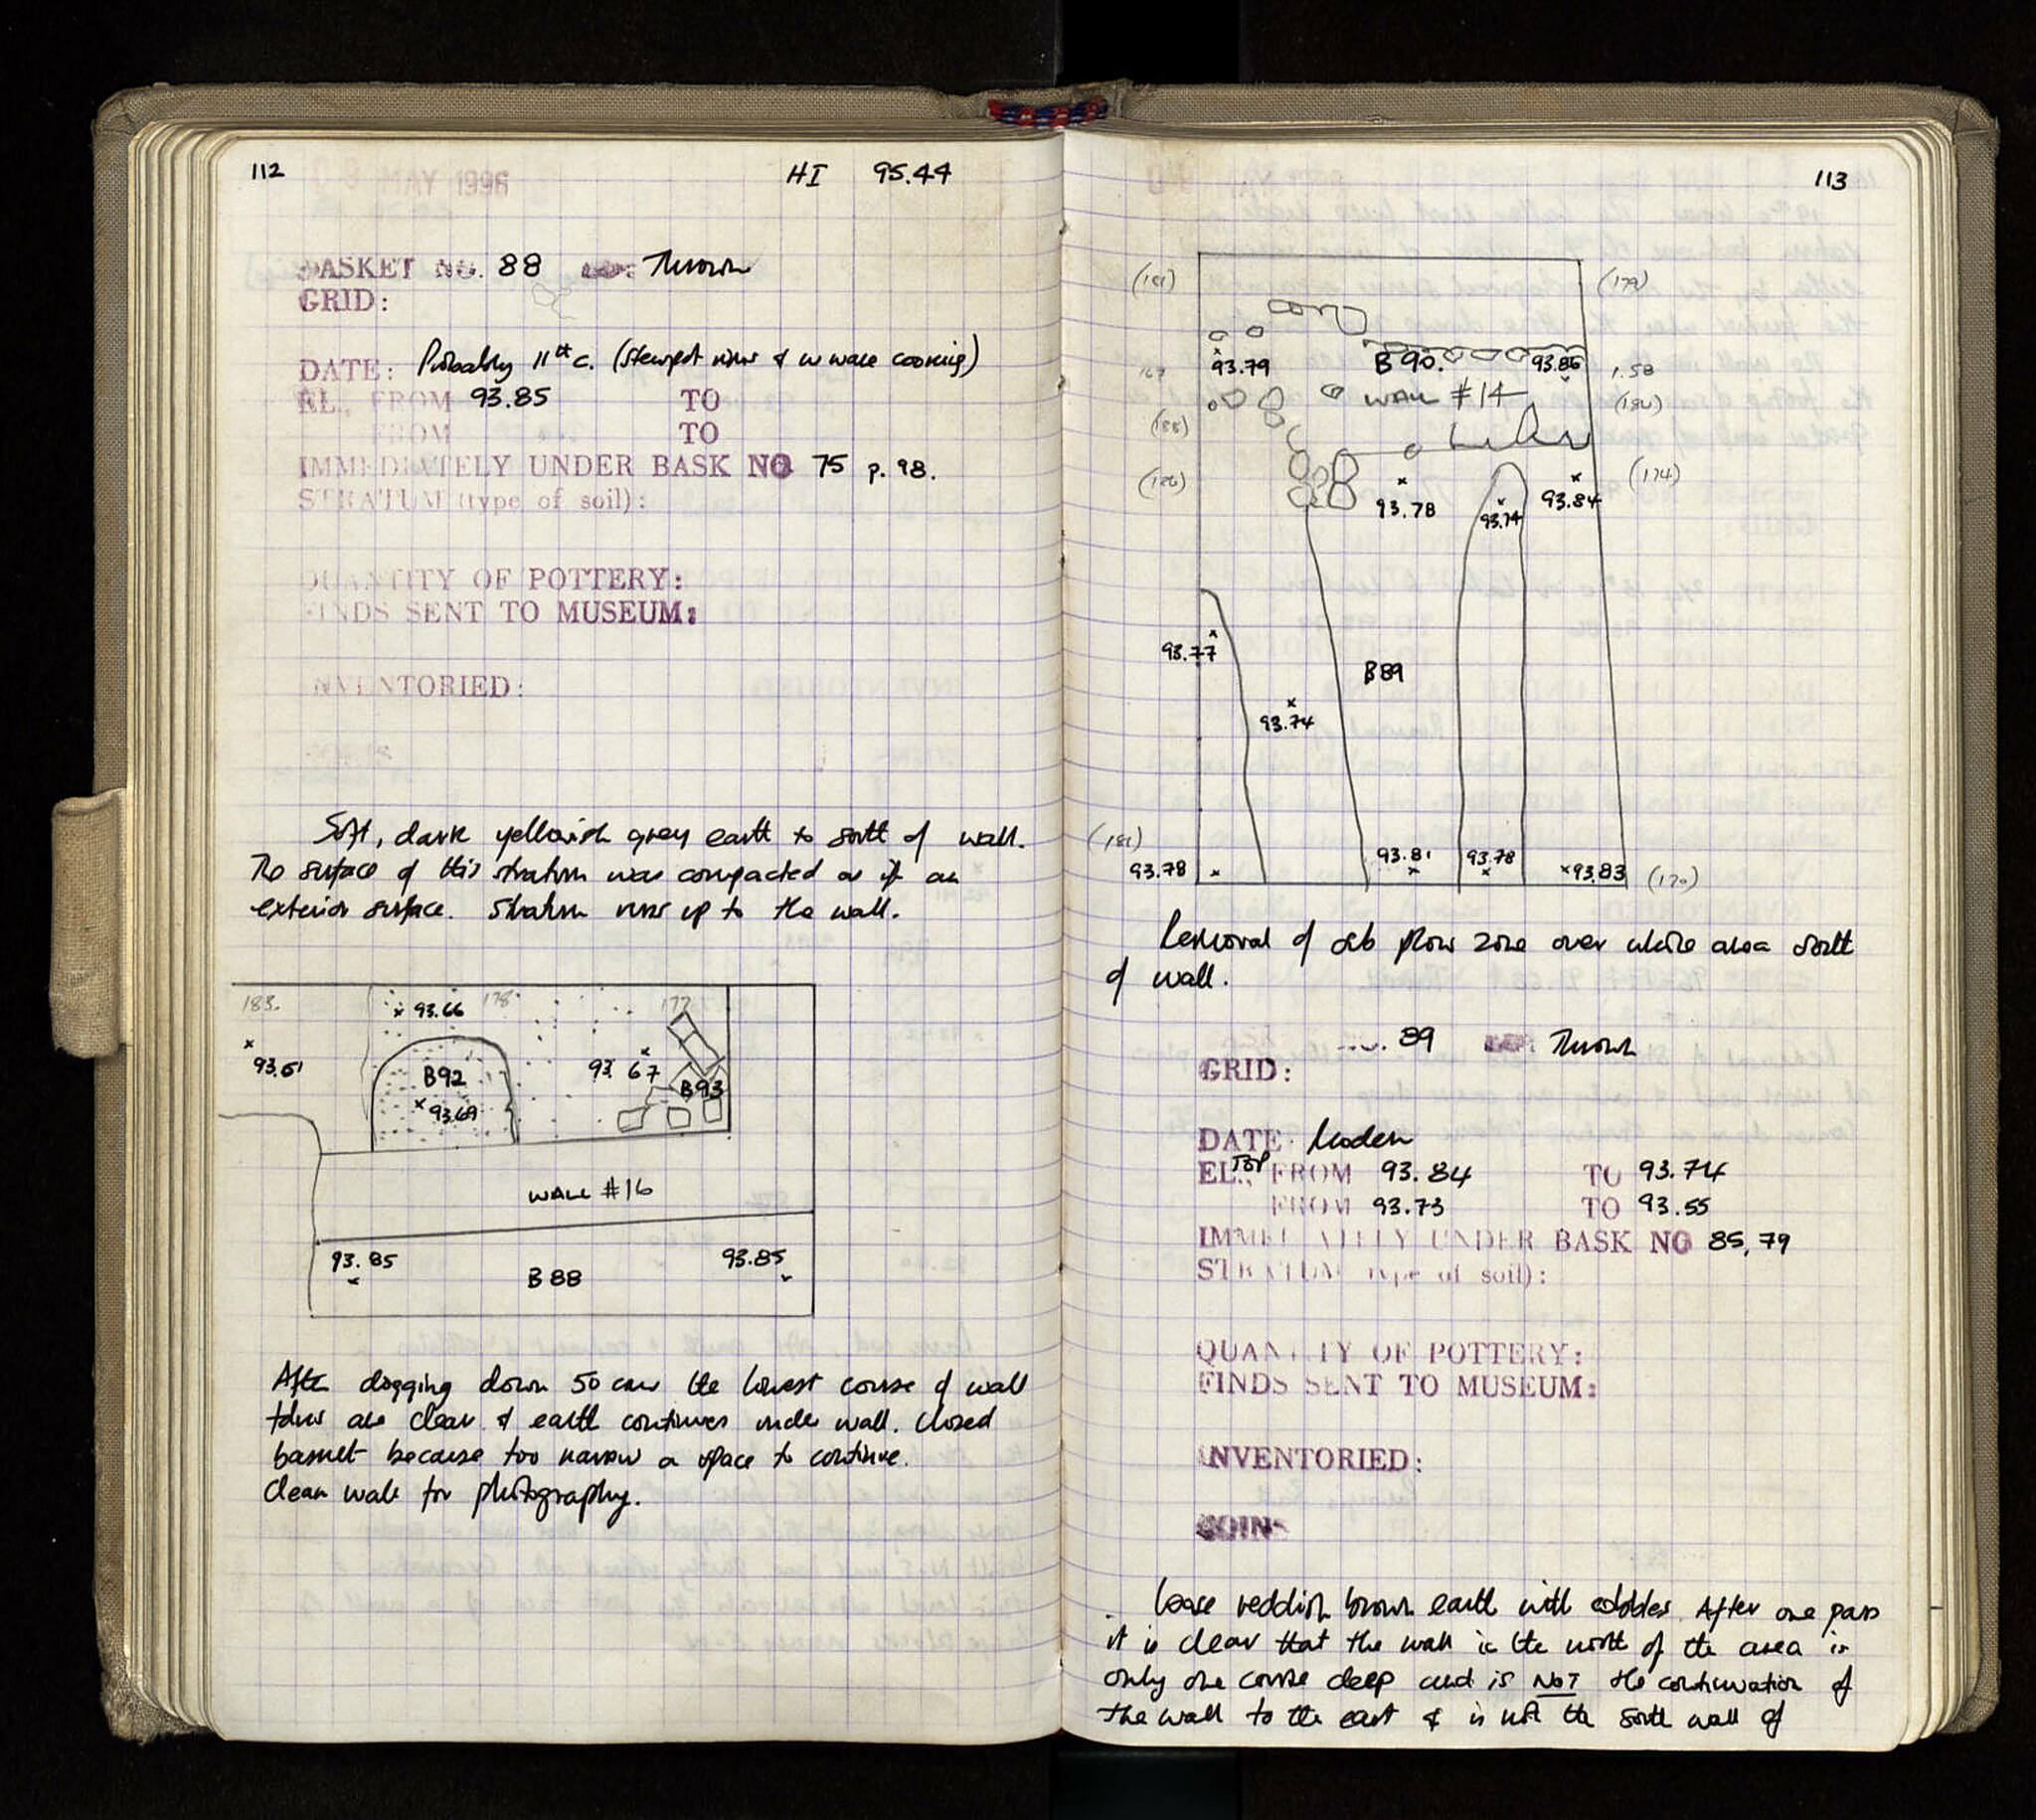 112
MAY 1996
HI 95.44
BASKET NO. 88 Thrown
GRID:
DATE: Probably 11th c. (stewpot rims & w ware cooking)
EL., FROM 93.85 TO
FROM TO
IMMEDIATELY UNDER BASK NO 75 p. 98.
STRATUM (type of soil):
QUANTITY OF POTTERY:
FINDS SENT TO MUSEUM:
INVENTORIED:
COINS
Soft, dark yellowish grey earth to south of wall.
The surface of this stratum was compacted as if an
exterior surface. Stratum runs up to the wall.
183. 178. 177
93.66
93.61
B92
93.69
93.67
B93
WALL #16
93.85 93.85
B88
After digging down 50 cm the lowest course of wall
are clear & earth continues under wall. Closed
basket because too narrow a space to continue.
Clean wall for photography.
113
(181) (179)
93.79 B90. 93.86 1.58
167
WALL #14
(186)
(188)
(186) (174)
93.78 93.74 93.84
93.77
B89
93.74
(181)
93.78 93.81 93.78 93.83 (170)
Removal of sub plow zone over whole area south
of wall.
NO. 89 Thrown
GRID:
DATE: Modern
EL., TOP FROM 93.84 TO 93.74
FROM 93.73 TO 93.55
IMMEDIATELY UNDER BASK NO 85, 79
STRATUM (type of soil):
QUANTITY OF POTTERY:
FINDS SENT TO MUSEUM:
INVENTORIED:
COINS
Loose reddish brown earth with cobbles. After one pass
it is clear that the wall in the north of the area is
only one course deep and is NOT the continuation of
the wall to the east & is not the south wall of